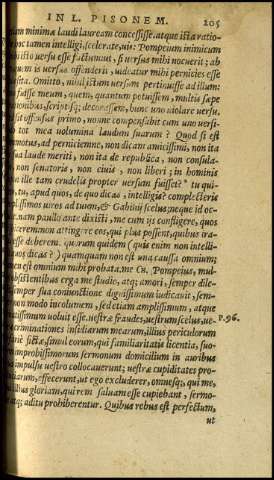 IN L. PISONEM. 205
minimæ laudi lauream concessisse. atque ista ratio-
ne tamen intelligi, scelerate, vis: Pompeium inimicum
versu esse factum, si versus mihi nocuerit; ab
is versus offenderit, videatur mihi pernicies esse
Omitto, nihil istum versum pertinuisse ad illum:
fuisse meum, quem, quantum potuissem, multis sæpe
onibus, scriptisq; decorassem, hunc uno violare versu.
sit offensus primo, nonne compensabit cum uno versi-
tot mea volumina laudum suarum? Quod si est
motus, ad perniciemne, non dicam amicissimi, non ita
sua laude meriti, non ita de republica, non consula-
non senatoris, non civis, non liberi; in hominis
ille tam crudelis propter versum fuisset? tu qui-
tu, apud quos, de quo dicas, intelligis? complecteris
issimos viros ad tuum, & Gabinij scelus; neque id oc-
nam paullo ante dixisti, me cum iis confligere, quos
non attingere eos, qui plus possent, quibus ira-
esse deberem. quorum quidem (quis enim non intelli-
quos dicas?) quamquam non est una caussa omnium;
est omnium mihi probata. me Cn. Pompeius, mul-
obsistentibus erga me studio, atq; amori, semper dile-
per sua conjunctione dignissimum judicavit, sem-
non modo incolumem, sed etiam amplissimum, atque
voluit esse. vestræ fraudes, vestrum scelus, ve- P. 96.
criminationes insidiarum mearum, illius periculorum
fictæ, simul eorum, qui familiaritatis licentia, suo-
improbissimorum sermonum domicilium in auribus
impulsu vestro collocaverunt; vestræ cupiditates pro-
effecerunt, ut ego excluderer, omnesq;, qui me,
illius gloriam, qui rem salvam esse cupiebant, sermo-
atq; aditu prohiberentur. Quibus rebus est perfectum,
ut